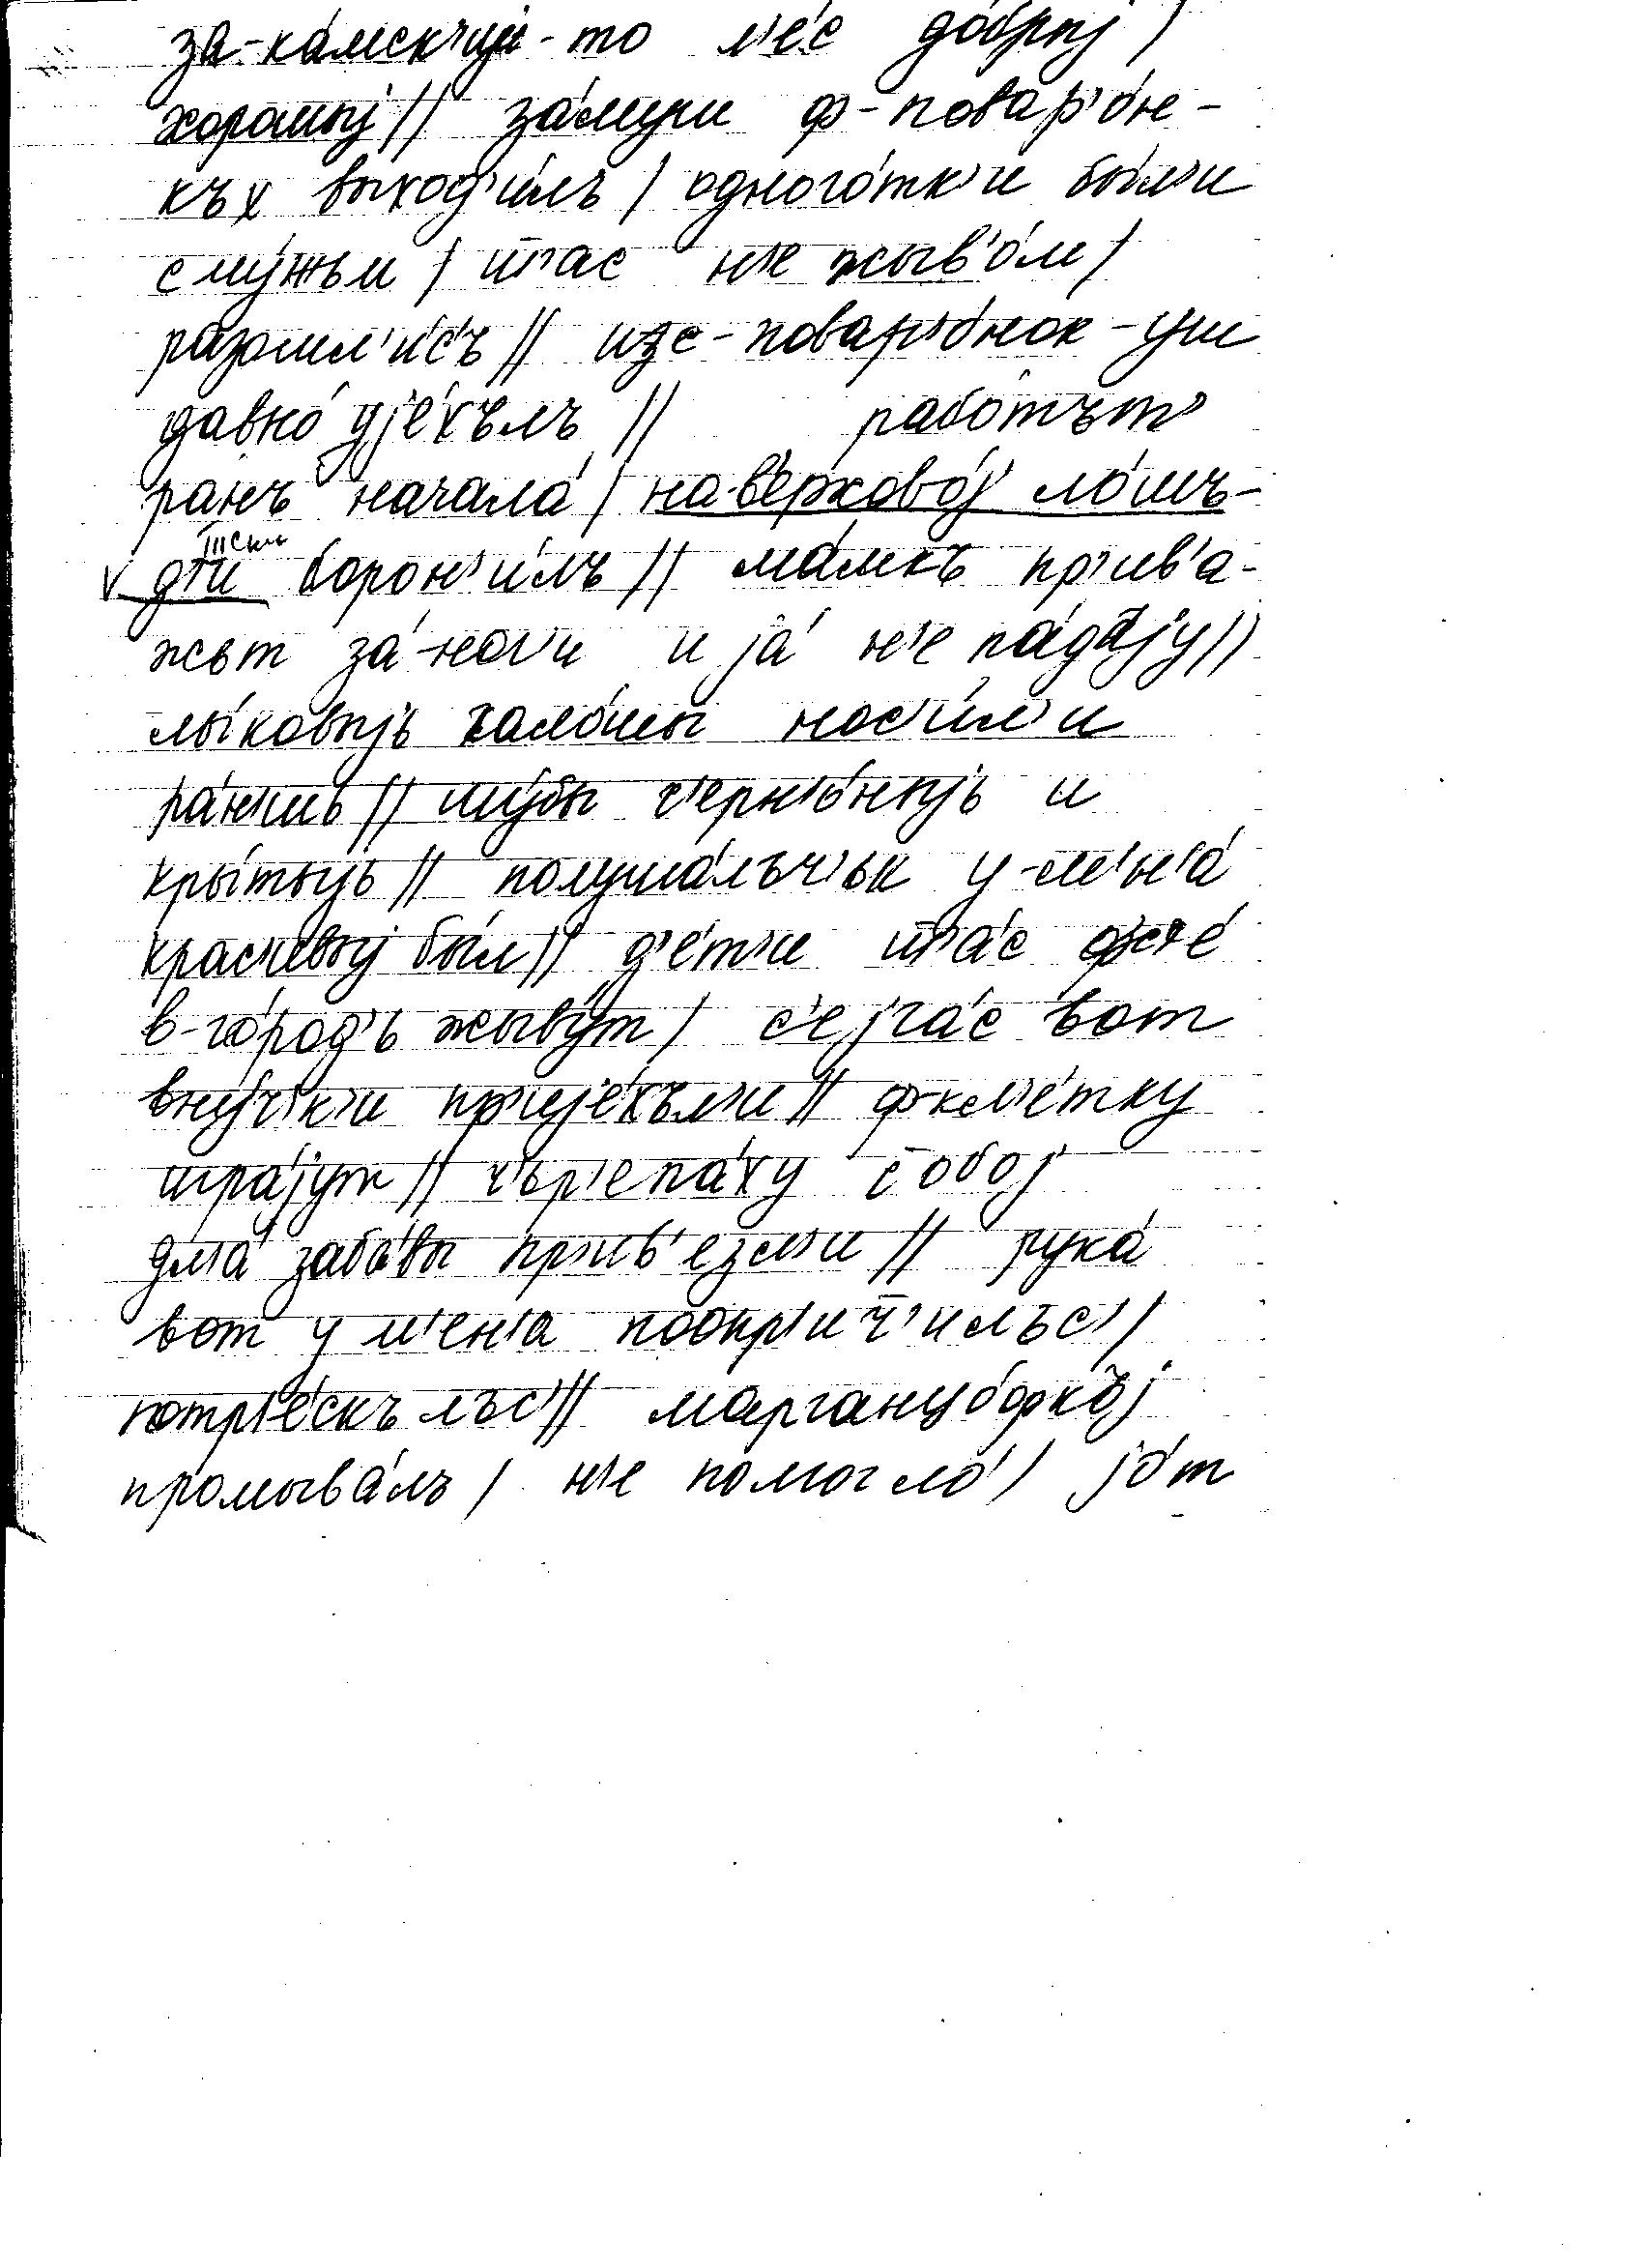 за-ка́мскч'ии-то л'е́с до́брыj /
хорошыj // за́муш ф-повар'о́н-
къх выход'и́лъ / одного́тк'и бы́л'и
с му́жъм / ш'ас н'е жыв'о́м /
разошл'и́с'ъ // изс-повар'о́нок-уш
давно́ уjе́хълъ // рабо́тът'
ранъ начала́ / на-в'ерхово́j ло́шъ-
д'и борон'и́лъ // ма́мкъ пр'ив'а-
жът за́-ног'и и jа́ н'е па́даjу //
лы́ковыjь кало́шы нос'и́л'и
ра́н'шь // шу́бы ч'ерн'о́ныjь и
кры́тыjь // полуша́лъч'ьк у-м'ен'а́
крас'ивыj бы́л // д'е́т'и ш'а́с фс'е́
в-го́род'ь жыву́т / с'еjча́с вот
вну́ч'к'и пр'иjе́хъл'и // ф-кл'е́тку
игра́jут // ч'ьр'епа́ху с собоj
дл'а забавы пр'ив'езл'и // рука́
вот у м'ен'а поопр'и́ч'илъс' /
потр'е́скълъс' // марганцо́фкоj
промыва́лъ / н'е помогло́ / jо́т